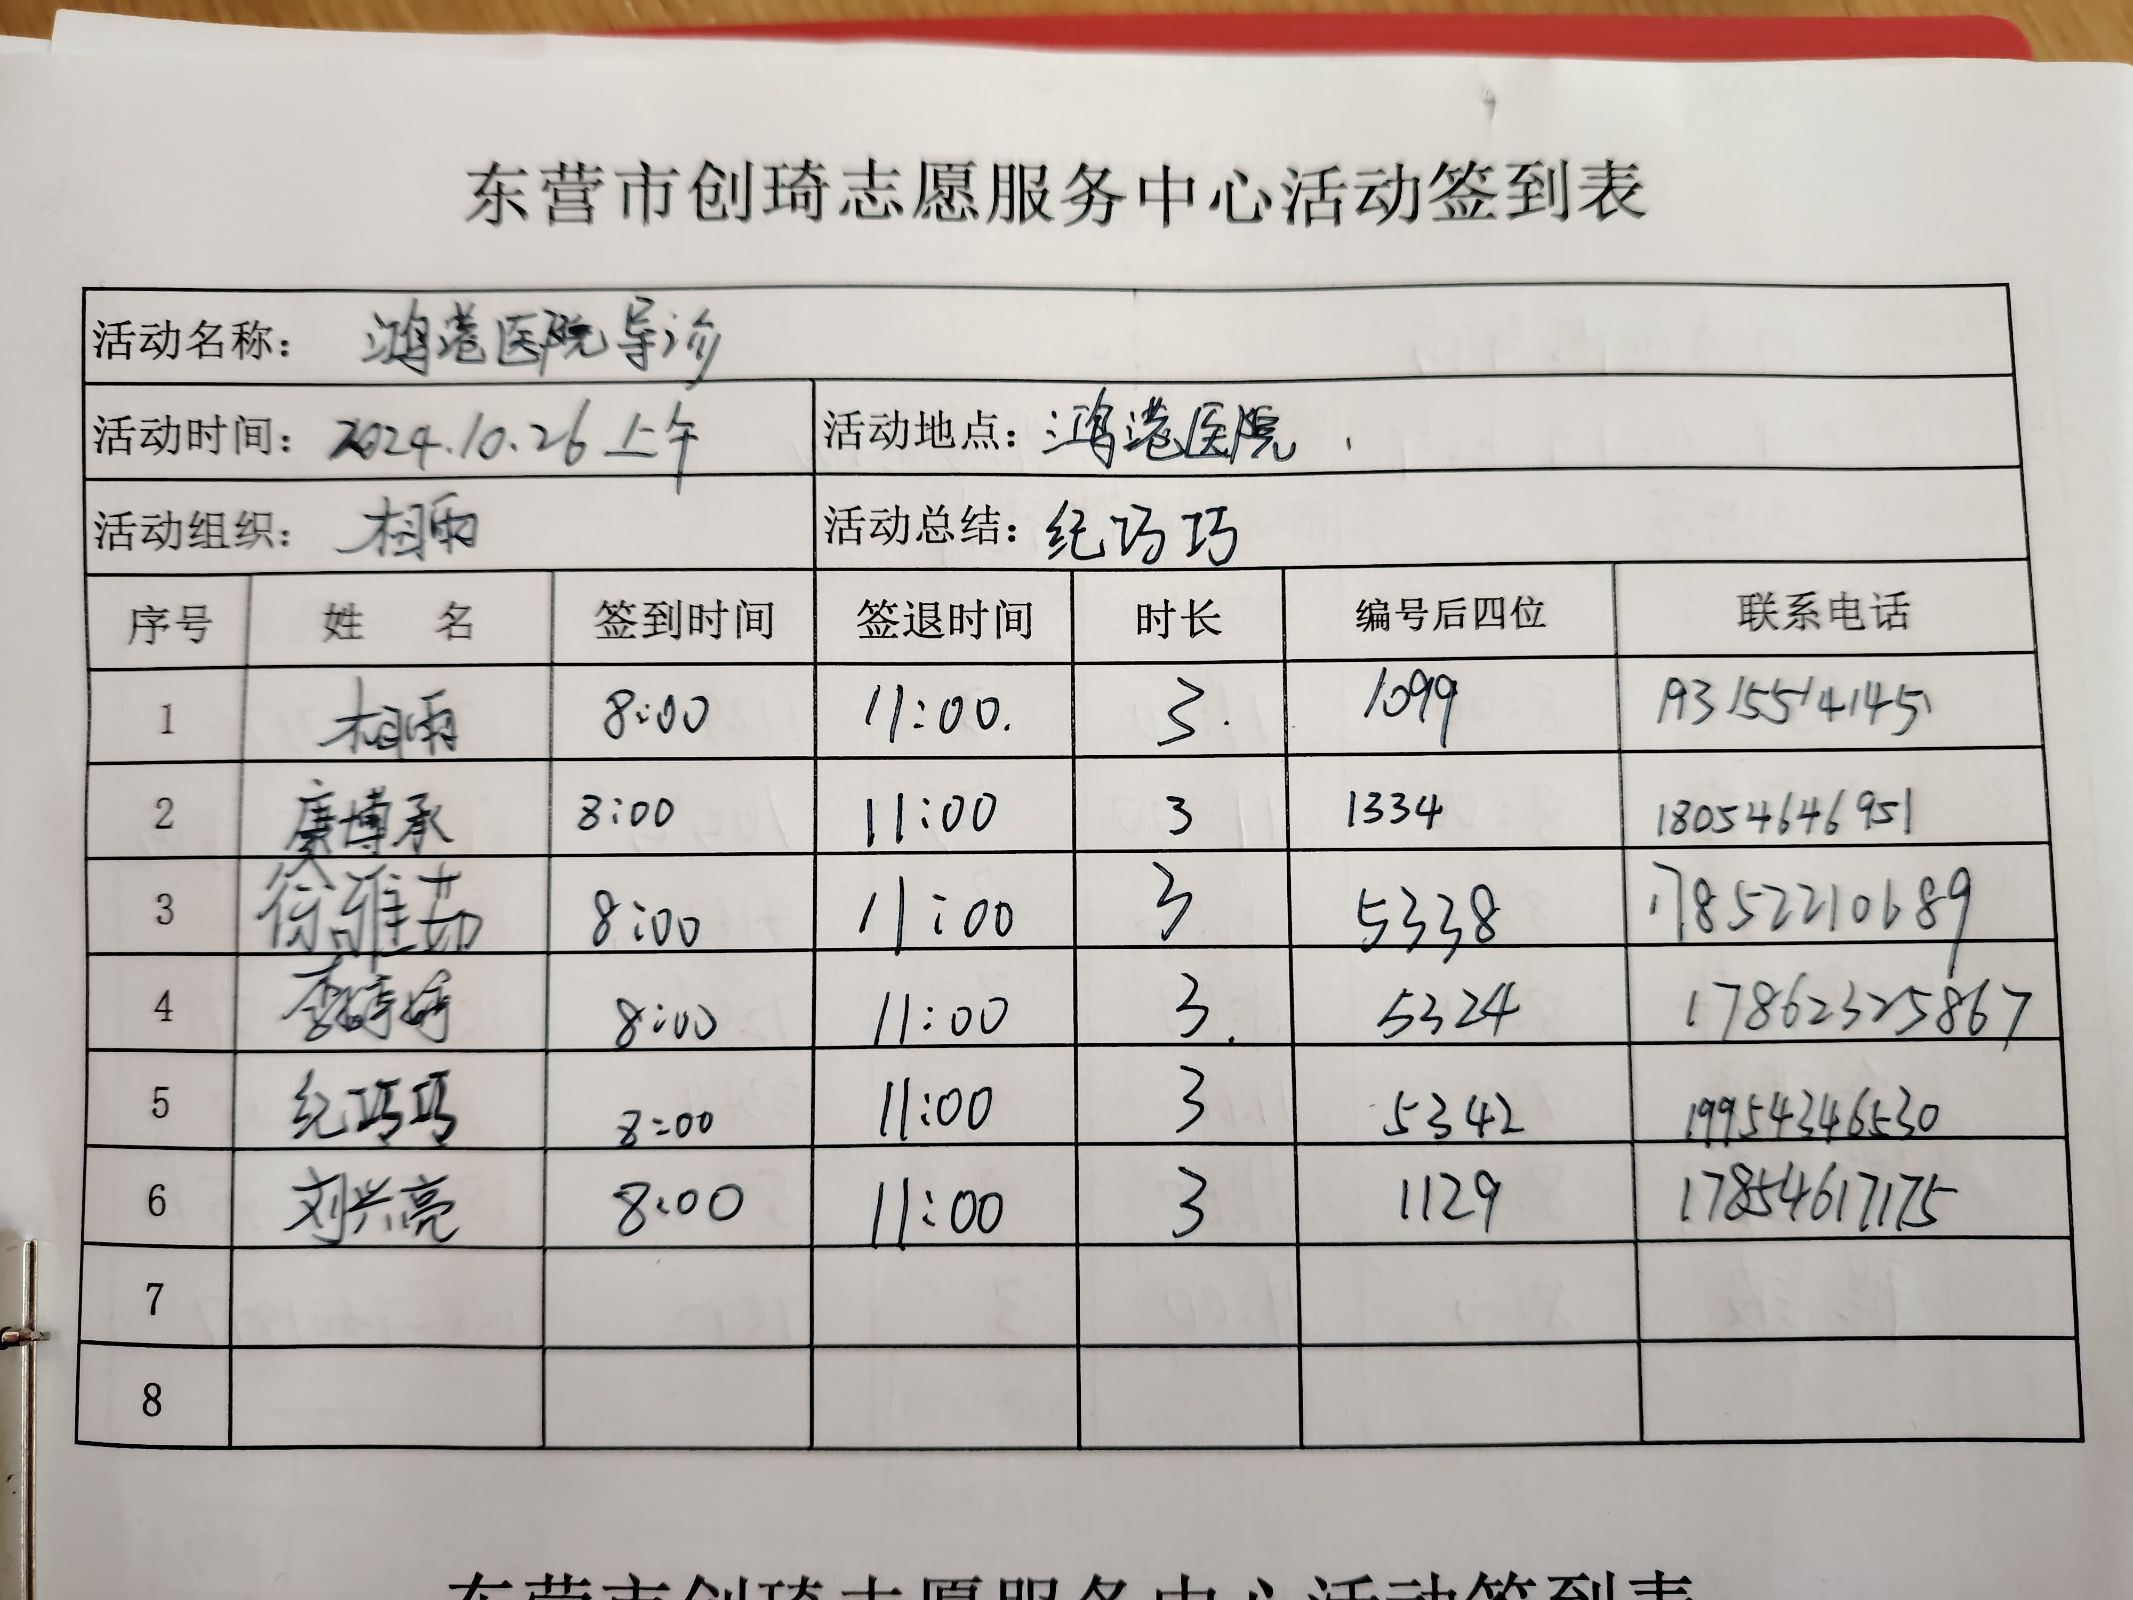 东营市创琦志愿服务中心活动签到表
活动名称: 鸿港医院导诊
活动时间: 2024.10.26上午 活动地点: 鸿港医院
活动组织: 相雨 活动总结: 纪巧巧
序号 姓 名 签到时间 签退时间 时长 编号后四位 联系电话
1 相雨 8:00 11:00. 3. 1099 19315514145
2 博承 8:00 11:00 3 1334 18054646951
3 徐雅茹 8:00 11:00 3 5338 17852210689
4 李婷婷 8:00 11:00 3. 5324 17862325867
5 纪巧巧 8:00 11:00 3 5342 19954346530
6 刘兴亮 8:00 11:00 3 1129 17854617175
7
8
东营市创琦志愿服务中心活动签到表